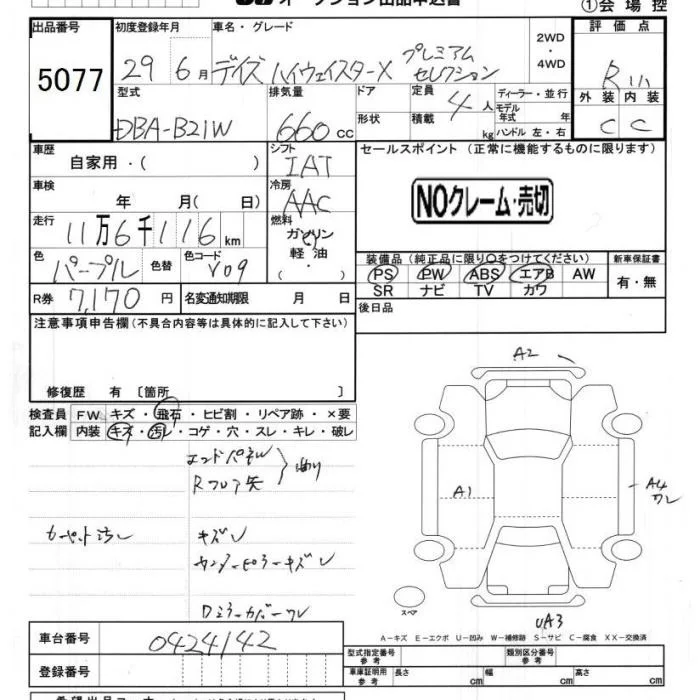 オークション出品申込書
①会場控
出品番号
5077
初度登録年月
29 6月
車名・グレード
デイズ ハイウェイスターX プレミアム セレクション
2WD
・
4WD
評価点
R
外装 内装
C C
型式
DBA-B21W
排気量
660 cc
ドア
形状
定員
4人
積載
kg
ディーラー・並行
モデル年式 年
ハンドル 左・右
車歴
自家用・( )
シフト
IAT
セールスポイント (正常に機能するものに限ります)
NOクレーム・売切
車検
年 月( 日)
冷房
AAC
走行
11万6千116km
燃料
ガソリン
軽油
( ・ )
色
パープル
色替
色コード
V09
装備品(純正品に限り○をつけてください)
PS PW ABS エアB AW
SR ナビ TV カワ
新車保証書
有・無
R券
7,170円
名変通知期限 月 日
後日品
注意事項申告欄(不具合内容等は具体的に記入して下さい)
修復歴 有〔箇所 〕
検査員 FW キズ・飛石・ヒビ割・リペア跡・×要
記入欄 内装 キズ・汚レ・コゲ・穴・スレ・キレ・破レ
エンドパネル
Rフロア矢
曲り
カーペット汚レ
キズレ
センターピラーキズレ
Dミラーカバーワレ
A2
A1
A4
ワレ
UA3
スペア
A-キズ E-エクボ U-凹み W-補修跡 S-サビ C-腐食 XX-交換済
車台番号
0424142
登録番号
型式指定番号
参考
類別区分番号
参考
車庫証明用
参考
長さ cm
幅 cm
高さ cm
希望出品コーナー